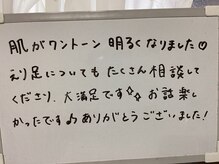 肌がワントーン明るくなりました♡
えり足についてもたくさん相談して
くださり、大満足です✧✧ お話楽し
かったです♪ ありがとうございました!